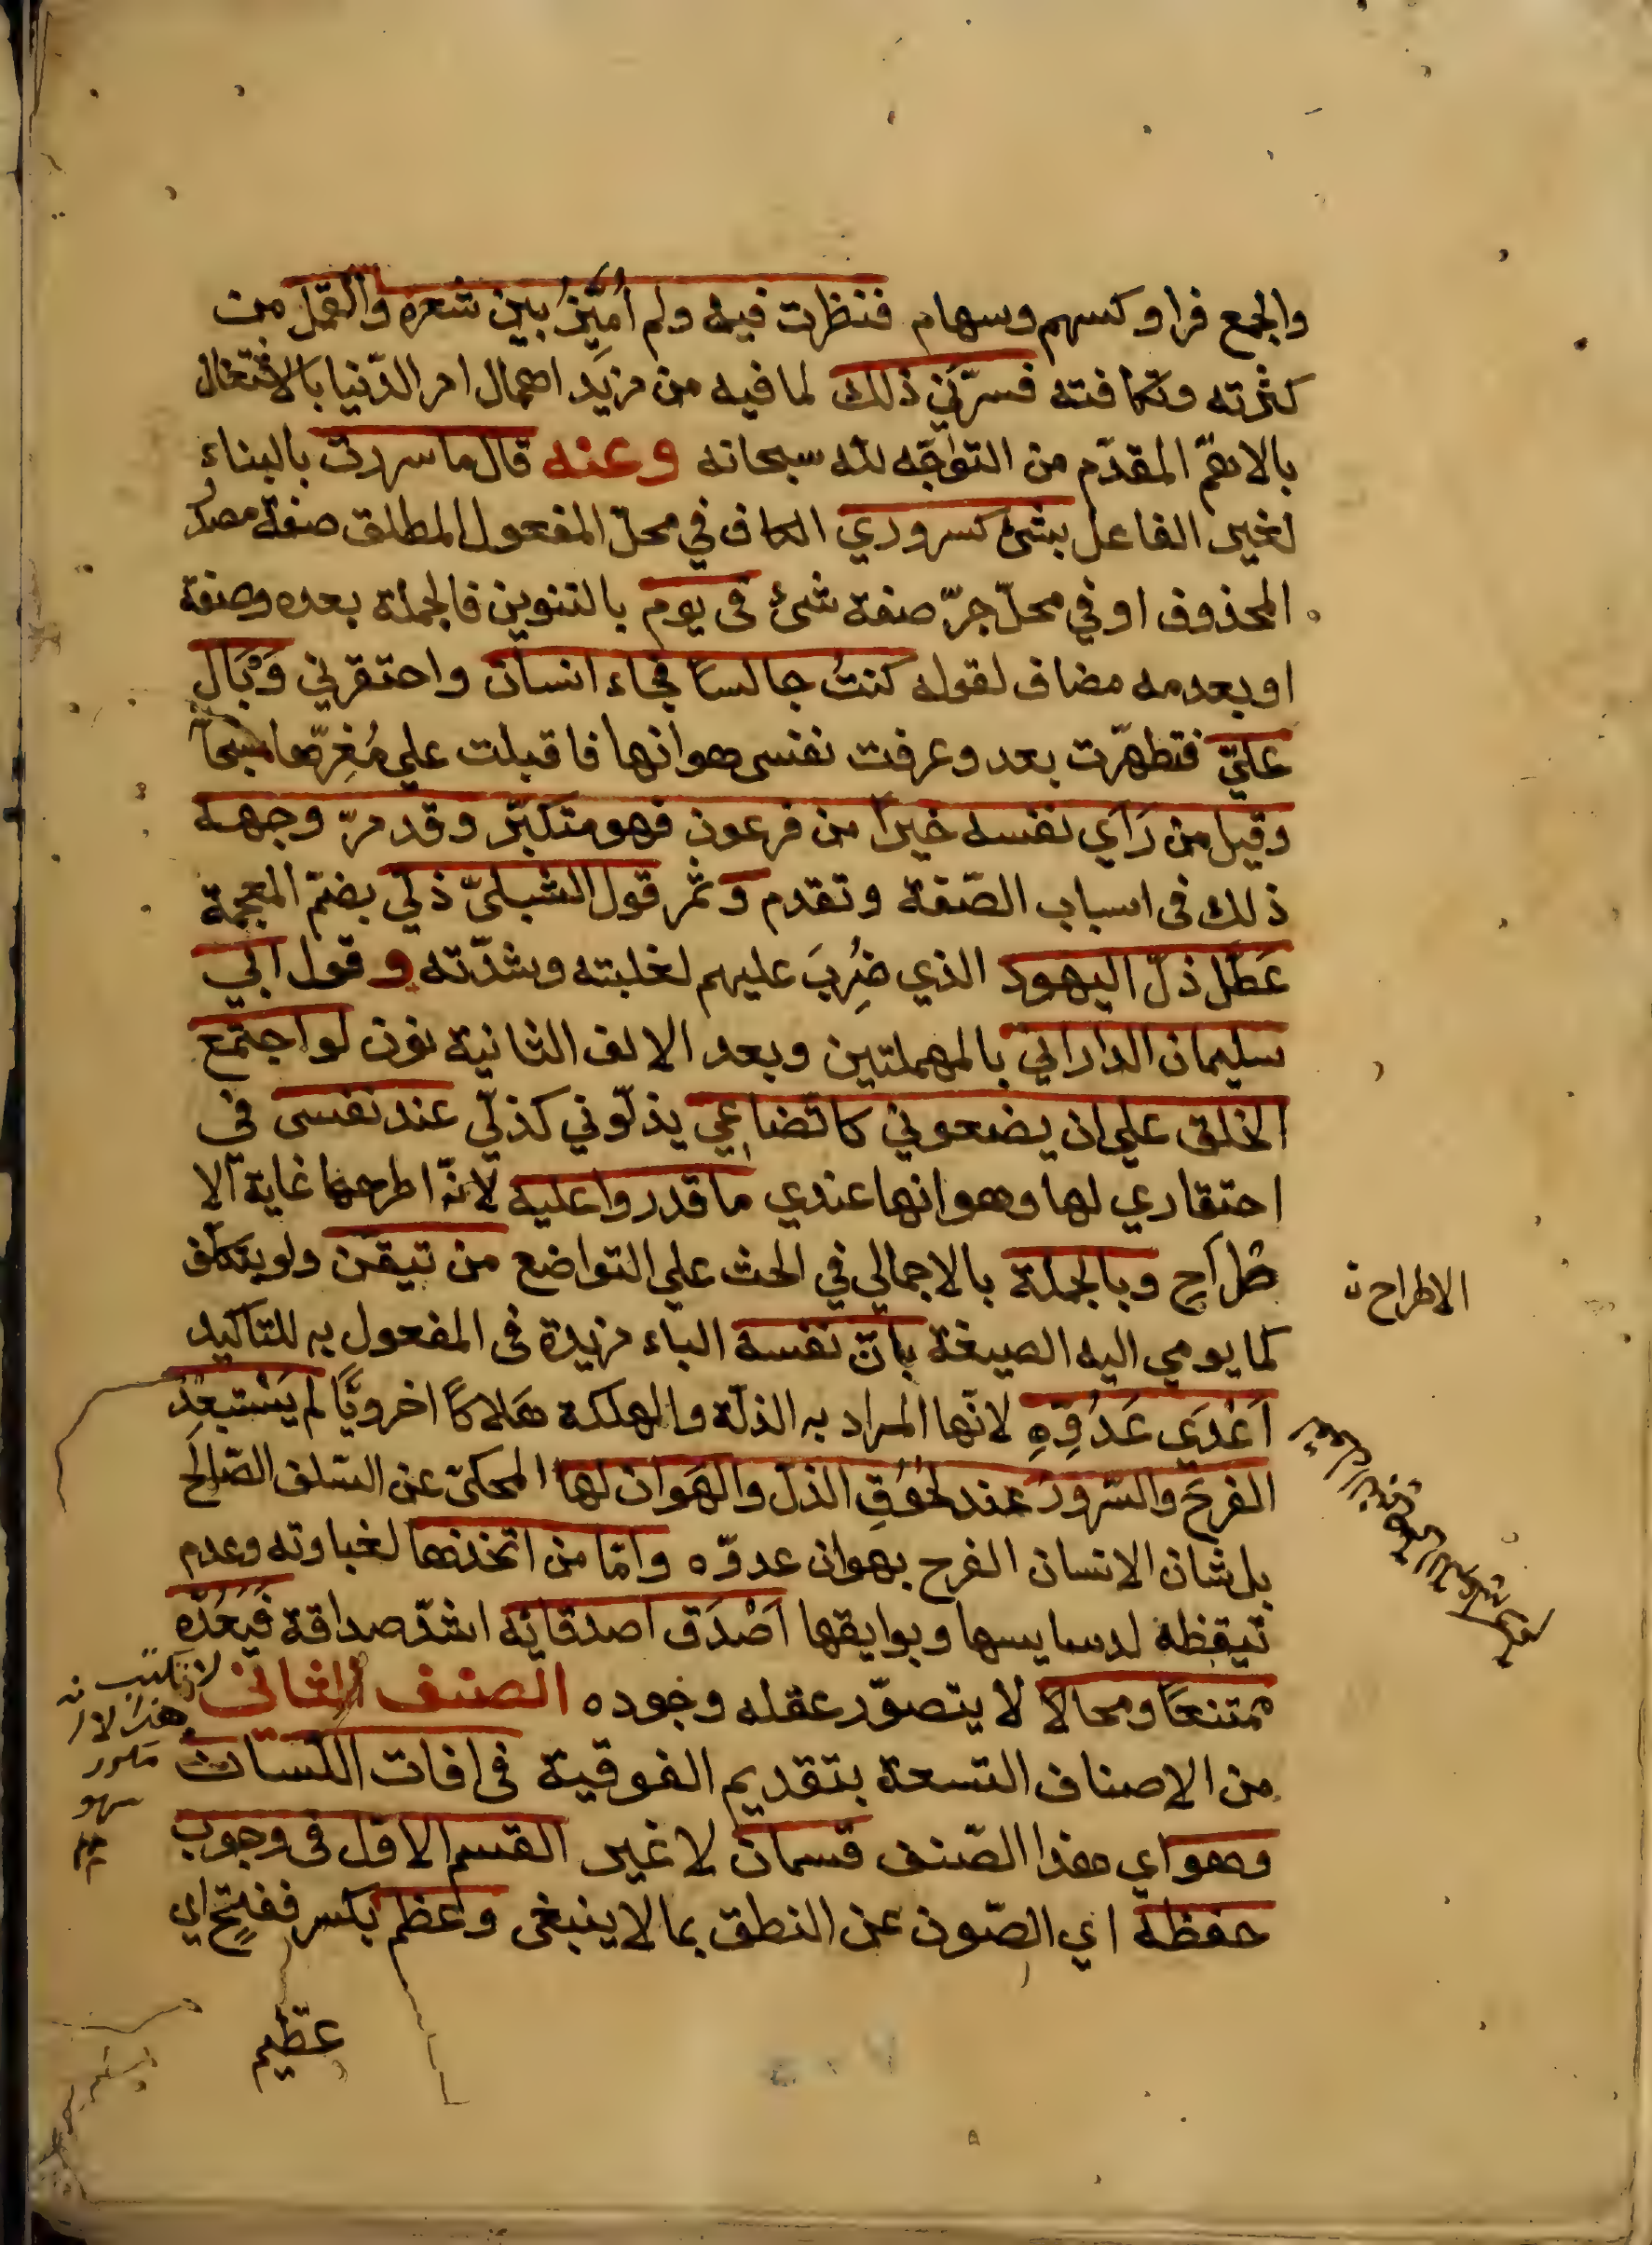 والجمع فرا وكسهم وسهام فنظرت فيه ولم أميّزُ بين شعره والقمل من
كثرته وتكافته فسرّني ذلك لما فيه من مزيد اهمال امر الدّنيا بالاشتغال
بالاهمّ المقدّم من التواجّه لله سبحانه وعنه قال ما سررت بالبناء
لغير الفاعل بشئ كسروري الكاف في محلّ المفعول المطلق صفة مصدر
المحذوف او في محلّ جرّ صفة شئ في يوم بالتنوين فالجملة بعده وصفة
او بعدمه مضاف لقوله كنتُ جالسًا فجاء انسان واحتقرني وَبَال
عليّ فتطهّرت بعد وعرفت نفسى هوانها فاقبلت علي
وقيل من رَأي نفسه خيرًا من فرعون فهو متكبّر وقد مرّ وجهه
ذلك فى اسباب الصّفة وتقدم وثمر قول الشبليّ ذلّي بضمّ المعجمة
عَطّل ذلّ اليهود الذي ضُرِبَ عليهم لغلبته وشدّته وقول ابي
سليمان الداراني بالمهملتين وبعد الالف الثانية نون لو اجتمع
الخلق علي ان يضعوني كاتّضاعي يذلّوني كذلّي عند نفسى في
احتقاري لها وهوانها عندي ما قدروا عليه لانّه اطرحها غاية الا
طراح وبالجملة بالاجمالي في الحث علي التواضع من تيقّن ولو بتكلّف
الاطراح ن
كما يومي اليه الصيغة بانّ نفسه الباء مزيدة فى المفعول به للتاكيد
اَعْدَي عَدُوِّهِ لانّها المراد به الذلّة والهلكة هَلاكًا اخرويًّا لم يَسْتبعِدْ
الفرحَ والسّرورَ عند لحُوقِ الذل والهَوان لها المحكىّ عن السّلف الصّالح
بل شان الانسان الفرح بهوان عدوّه وامّا من اتّخذها لغباوته وعدم
تيقظه لدسايسها وبوايقها اَصْدَق اصدقائِه اشدّ صداقة فَيَعُدُّه
ممتنعًا ومحالا لا يتصوّر عقله وجوده الصنف الثاني
لا تكتب
هذا
مكرر
سهو
من الاصناف التسعة بتقديم الفوقية فى افات اللّسان
وهو اي هذا الصّنف قسمان لا غير القسم الاول فى وجوب
حفظه اي الصّون عن النطق بما لا ينبغى وعظم بكسر ففتح اي
عظيم